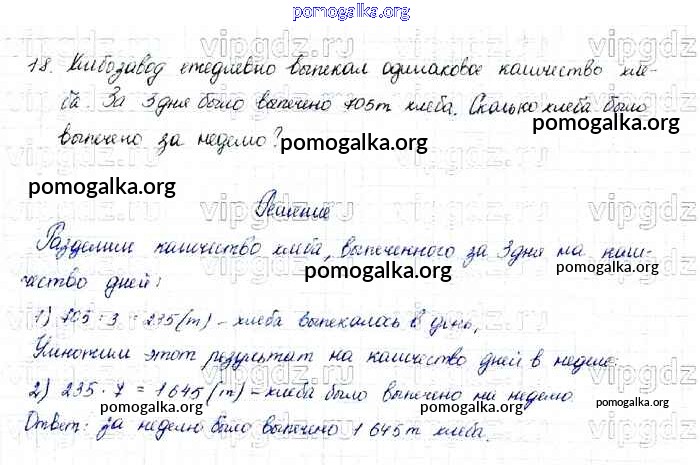 pomogalka.org
18. Хлебозавод ежедневно выпекал одинаковое количество хле-
ба. За 3 дня было выпечено 705т хлеба. Сколько хлеба было
выпечено за неделю?
pomogalka.org
pomogalka.org
pomogalka.org
Решение
Разделим количество хлеба, выпеченного за 3 дня на коли-
чество дней:
pomogalka.org
pomogalka.org
1) 705 : 3 = 235 (т) – хлеба выпекалось в день,
Умножим этот результат на количество дней в неделе:
2) 235 · 7 = 1645 (т) – хлеба было выпечено на неделю
pomogalka.org
pomogalka.org
pomogalka.org
Ответ: за неделю было выпечено 1 645т хлеба.
pomogalka.org